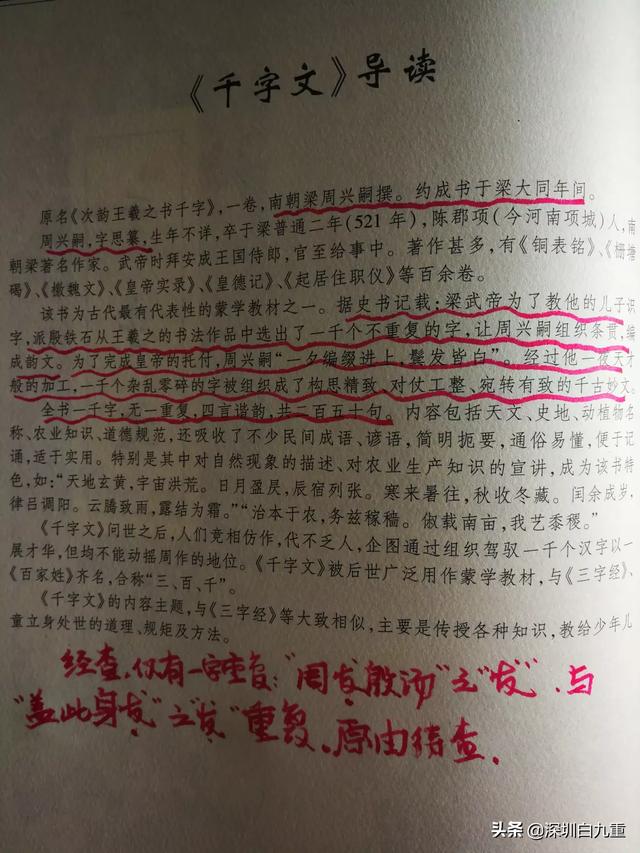 《千字文》导读
原名《次韵王羲之书千字》,一卷,南朝梁周兴嗣撰。约成书于梁大同年间。
周兴嗣,字思纂,生年不详,卒于梁普通二年(521年),陈郡项(今河南项城)人,南
朝梁著名作家。武帝时拜安成王国侍郎,官至给事中。著作甚多,有《铜表铭》、《栅塘
碣》、《檄魏文》、《皇帝实录》、《皇德记》、《起居住职仪》等百余卷。
该书为古代最有代表性的蒙学教材之一。据史书记载:梁武帝为了教他的儿子识
字,派殷铁石从王羲之的书法作品中选出了一千个不重复的字,让周兴嗣组织条贯,编
成韵文。为了完成皇帝的托付,周兴嗣“一夕编缀进上,鬓发皆白”。经过他一夜天才
般的加工,一千个杂乱零碎的字被组织成了构思精致、对仗工整、宛转有致的千古妙文。
全书一千字,无一重复,四言谐韵,共二百五十句。内容包括天文、史地、动植物名
称、农业知识、道德规范,还吸收了不少民间成语、谚语,简明扼要,通俗易懂,便于记
诵,适于实用。特别是其中对自然现象的描述、对农业生产知识的宣讲,成为该书特
色,如:“天地玄黄,宇宙洪荒。日月盈昃,辰宿列张。寒来暑往,秋收冬藏。闰余成岁,
律吕调阳。云腾致雨,露结为霜。”“治本于农,务兹稼穑。俶载南亩,我艺黍稷。”
《千字文》问世之后,人们竞相仿作,代不乏人,企图通过组织驾驭一千个汉字以一
展才华,但均不能动摇周作的地位。《千字文》被后世广泛用作蒙学教材,与《三字经》、
《百家姓》齐名,合称“三、百、千”。
《千字文》的内容主题,与《三字经》等大致相似,主要是传授各种知识,教给少年儿
童立身处世的道理、规矩及方法。
经查,仅有一字重复:“周发殷汤”之“发”,与
“盖此身发”之“发”重复。原由待查.
头条 @深圳白九重